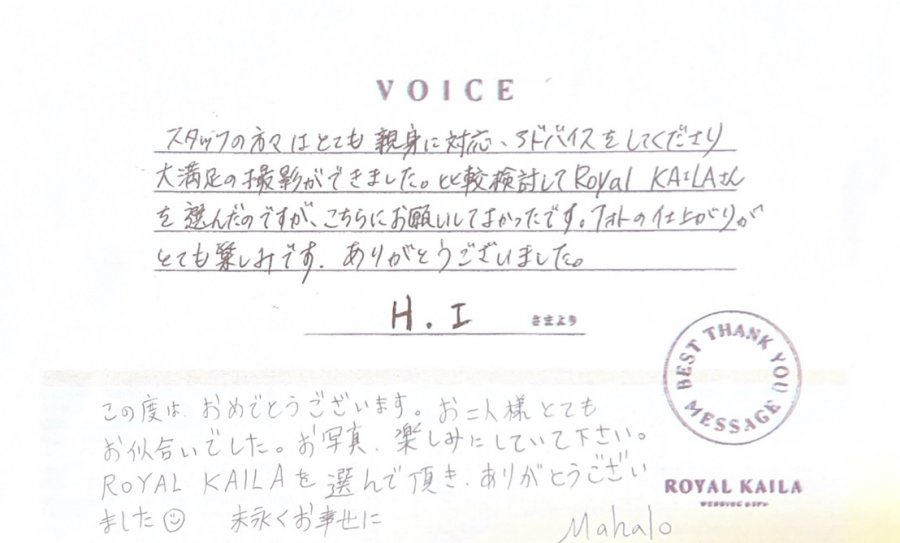 VOICE
スタッフの方々はとても親身に対応、アドバイスをしてくださり
大満足の撮影ができました。比較検討してRoyal KAILAさん
を選んだのですが、こちらにお願いしてよかったです。フォトの仕上がりが
とても楽しみです. ありがとうございました。
H. I さまより
BEST THANK YOU MESSAGE
この度は、おめでとうございます。お二人様とても
お似合いでした。お写真、楽しみにしていて下さい。
ROYAL KAILAを選んで頂き、ありがとうござい
ました☺ 末永くお幸せに
Mahalo
ROYAL KAILA